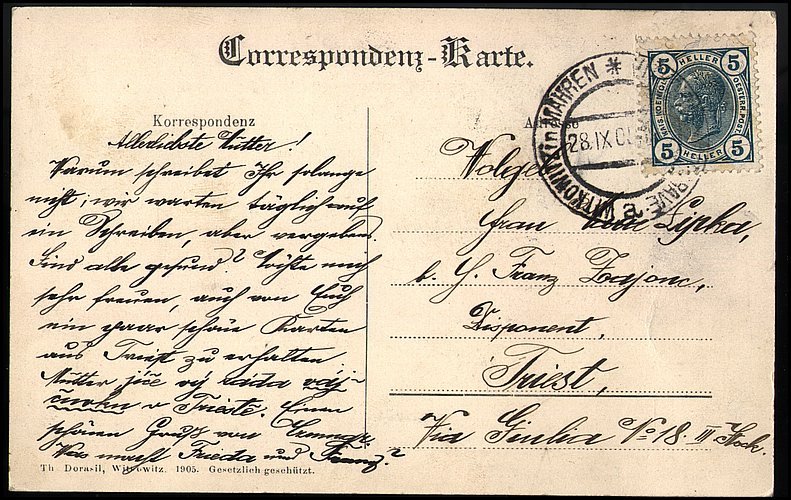 Correspondenz-Karte.
Korrespondenz
Allerliebste Mutter!
Warum schreibet Ihr solange
nicht; wir warten täglich auf
ein Schreiben, aber vergebens.
Sind alle gesund? Möchte mich
sehr freuen, auch von Euch
ein paar schöne Karten
aus Triest zu erhalten.
Mutter ráda
v Trieste. Einen
schönen Gruß von
Was macht Frieda und Franz?
Th Dorasil, Witkowitz. 1905. Gesetzlich geschützt.
WITKOWITZ in MÄHREN *
28.IX.05
HELLER
5 5
KAIS. KOENIGL. OESTERR. POST
5 5
HELLER
Frau Lipka,
b. H. Franz Zajonc,
Disponent,
Triest,
Via Giulia No 18. III Stock.